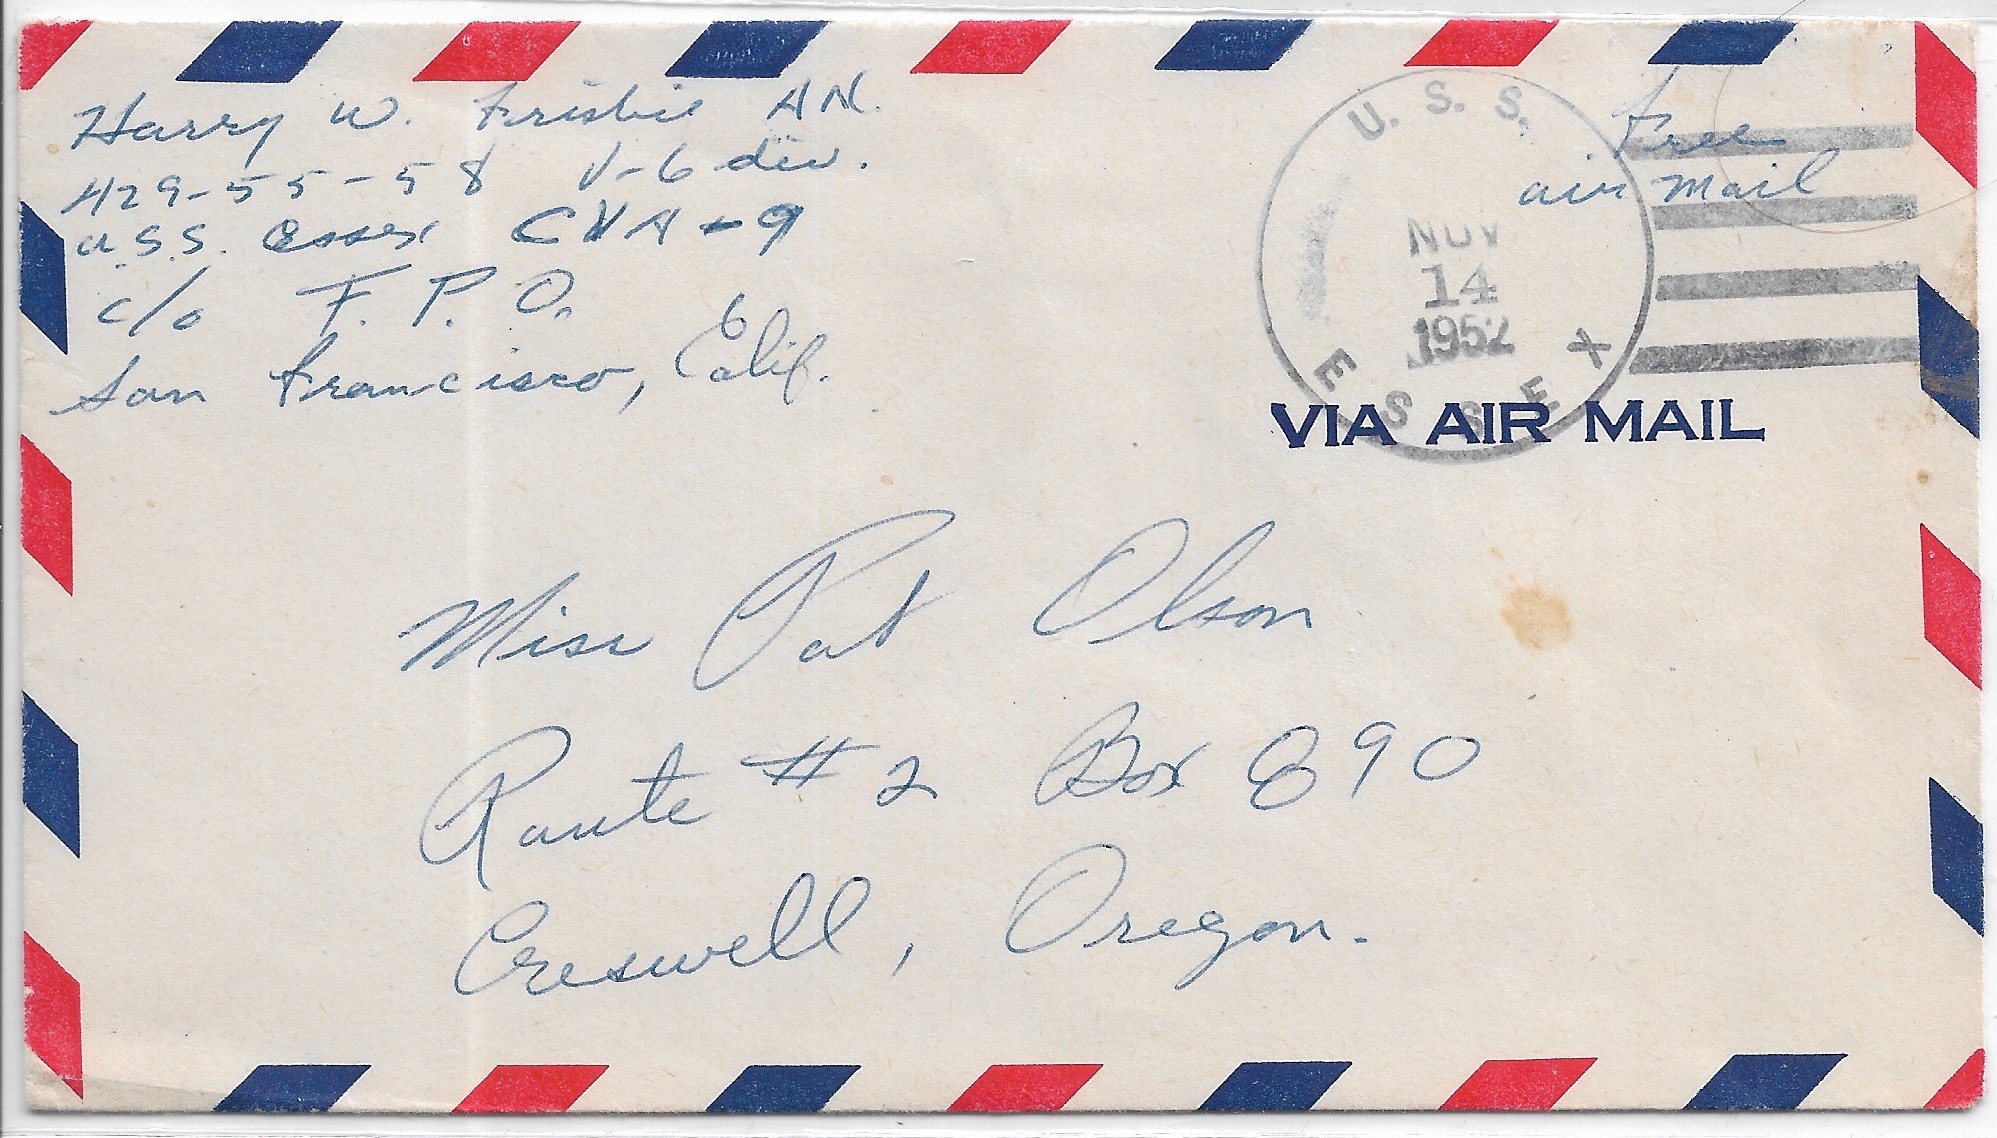 Harry W. Frisbie AN.
429-55-58 V-6 div.
U.S.S. Essex CVA-9
c/o F. P. O.
San Francisco, Calif.
U. S. S.
ESSEX
NOV
14
1952
Free
air mail
VIA AIR MAIL
Miss Pat Olson
Route #2 Box 890
Creswell, Oregon.